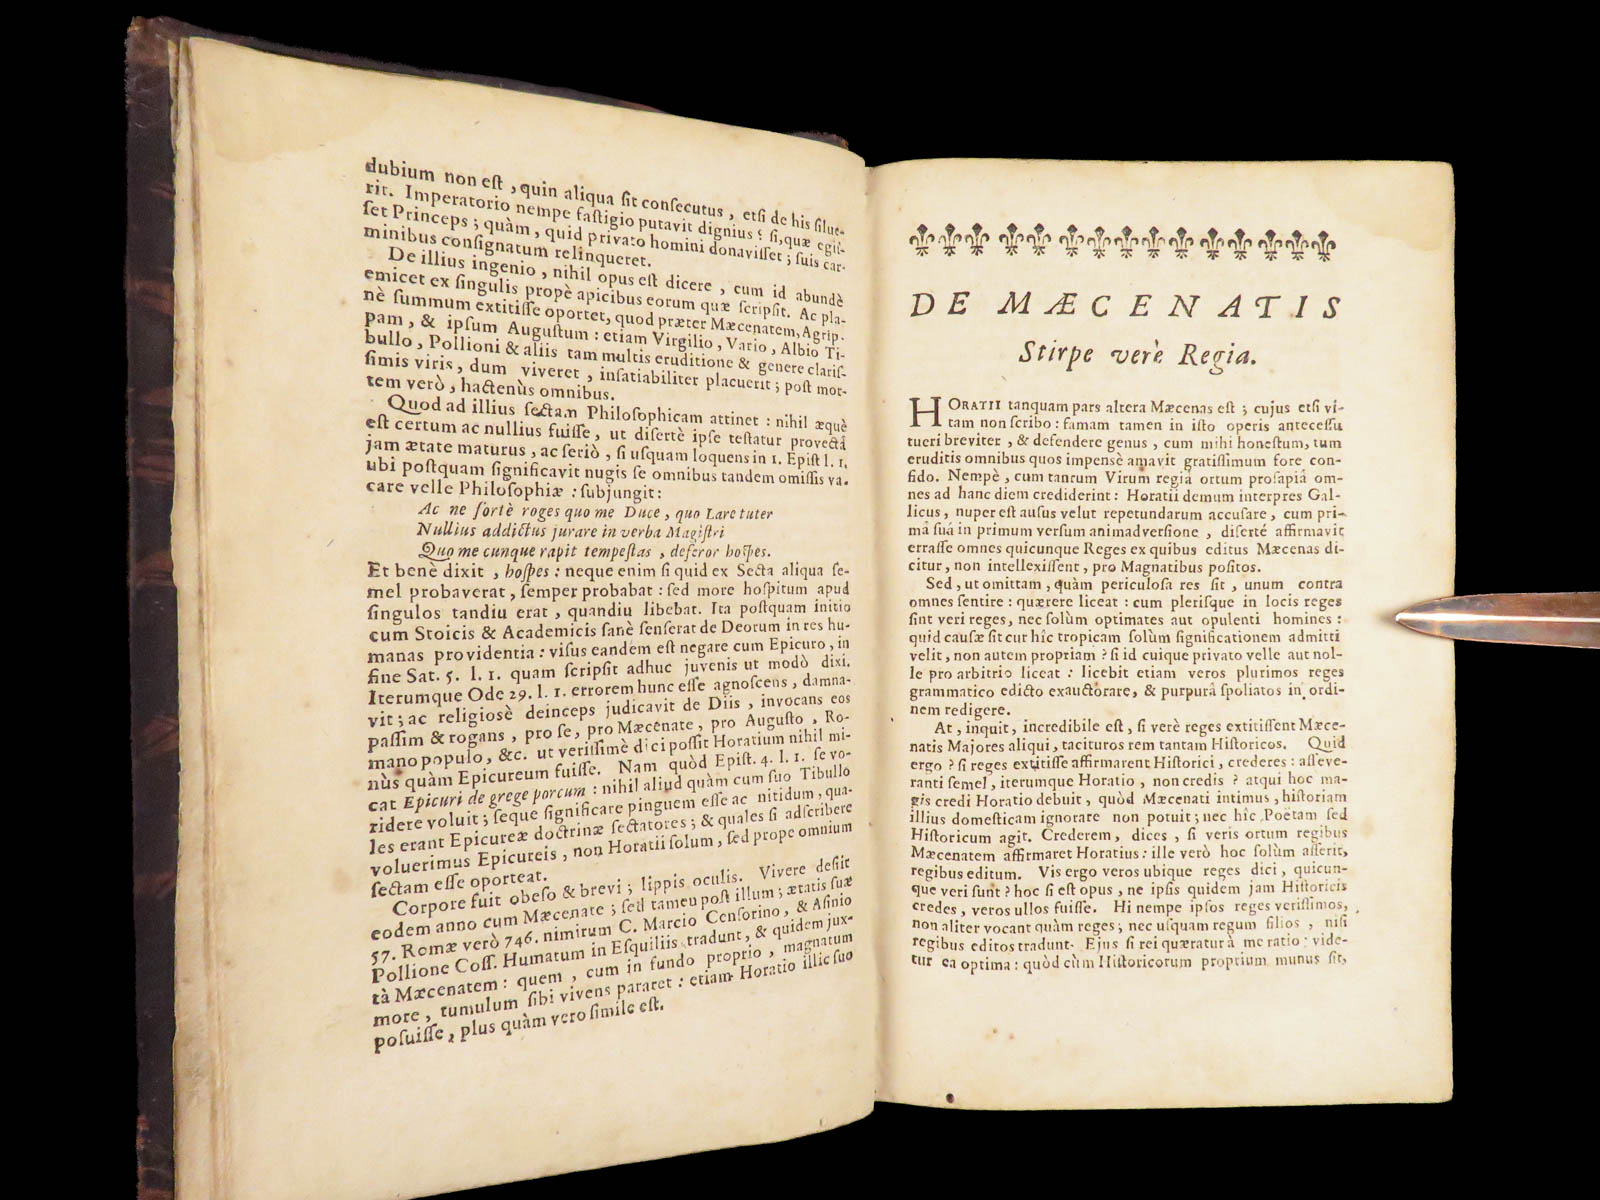 dubium non eſt, quin aliqua ſit conſecutus, etſi de his ſilue-
rit. Imperatorio nempe faſtigio putavit dignius; ſi, quæ egiſ-
ſet Princeps; quàm, quid privato homini donaviſſet; ſuis car-
minibus conſignatum relinqueret.
De illius ingenio, nihil opus eſt dicere, cum id abundè
emicet ex ſingulis propè apicibus eorum quæ ſcripſit. Ac pla-
nè ſummum extitiſſe oportet, quod præter Mæcenatem, Agrip-
pam, & ipſum Auguſtum: etiam Virgilio, Vario, Albio Ti-
bullo, Pollioni & aliis tam multis eruditione & genere clariſ-
ſimis viris, dum viveret, inſatiabiliter placuerit; poſt mor-
tem verò, hactenùs omnibus.
Quod ad illius ſectam Philoſophicam attinet: nihil æquè
eſt certum ac nullius fuiſſe, ut diſertè ipſe teſtatur provectâ
jam ætate maturus, ac ſeriò, ſi uſquam loquens in 1. Epiſt l. 1.
ubi poſtquam ſignificavit nugis ſe omnibus tandem omiſſis va-
care velle Philoſophiæ: ſubjungit:
Ac ne fortè roges quo me Duce, quo Lare tuter
Nullius addictus jurare in verba Magiſtri
Quo me cunque rapit tempeſtas, deferor hoſpes.
Et benè dixit, hoſpes: neque enim ſi quid ex Secta aliqua ſe-
mel probaverat, ſemper probabat: ſed more hoſpitum apud
ſingulos tandiu erat, quandiu libebat. Ita poſtquam initio
cum Stoicis & Academicis ſanè ſenſerat de Deorum in res hu-
manas providentia: viſus eandem eſt negare cum Epicuro, in
fine Sat. 5. l. 1. quam ſcripſit adhuc juvenis ut modò dixi.
Iterumque Ode 29. l. 1. errorem hunc eſſe agnoſcens, damna-
vit; ac religiosè deinceps judicavit de Diis, invocans eos
paſſim & rogans, pro ſe, pro Mæcenate, pro Auguſto, Ro-
mano populo, &c. ut veriſſimè dici poſſit Horatium nihil mi-
nùs quàm Epicureum fuiſſe. Nam quòd Epiſt. 4. l. 1. ſe vo-
cat Epicuri de grege porcum: nihil aliud quàm cum ſuo Tibullo
ridere voluit; ſeque ſignificare pinguem eſſe ac nitidum, qua-
les erant Epicureæ doctrinæ ſectatores; & quales ſi adſcribere
voluerimus Epicureis, non Horatii ſolum, ſed prope omnium
ſectam eſſe oporteat.
Corpore fuit obeſo & brevi; lippis oculis. Vivere deſiit
eodem anno cum Mæcenate; ſed tameu poſt illum; ætatis ſuæ
57. Romæ verò 746. nimirum C. Marcio Cenſorino, & Aſinio
Pollione Coſſ. Humatum in Eſquiliis tradunt, & quidem jux-
tà Mæcenatem: quem, cum in fundo proprio, magnatum
more, tumulum ſibi vivens pararet: etiam Horatio illic ſuo
poſuiſſe, plus quàm vero ſimile eſt.
DE MÆCENATIS
Stirpe verè Regia.
HORATII tanquam pars altera Mæcenas eſt; cujus etſi vi-
tam non ſcribo: famam tamen in iſto operis anteceſſu
tueri breviter, & defendere genus, cum mihi honeſtum, tum
eruditis omnibus quos impensè amavit gratiſſimum fore con-
fido. Nempè, cum tantum Virum regiâ ortum proſapiâ om-
nes ad hanc diem crediderint: Horatii demum interpres Gal-
licus, nuper eſt auſus velut repetundarum accuſare, cum pri-
mâ ſuâ in primum verſum animadverſione, diſertè affirmavit
erraſſe omnes quicunque Reges ex quibus editus Mæcenas di-
citur, non intellexiſſent, pro Magnatibus poſitos.
Sed, ut omittam, quàm periculoſa res ſit, unum contra
omnes ſentire: quærere liceat: cum pleriſque in locis reges
ſint veri reges, nec ſolùm optimates aut opulenti homines:
quid cauſæ ſit cur hîc tropicam ſolùm ſignificationem admitti
velit, non autem propriam? ſi id cuique privato velle aut nol-
le pro arbitrio liceat: licebit etiam veros plurimos reges
grammatico edicto exauctorare, & purpurâ ſpoliatos in ordi-
nem redigere.
At, inquit, incredibile eſt, ſi verè reges extitiſſent Mæce-
natis Majores aliqui, tacituros rem tantam Hiſtoricos. Quid
ergo? ſi reges extitiſſe affirmarent Hiſtorici, crederes: aſſeve-
ranti ſemel, iterumque Horatio, non credis? atqui hoc ma-
gis credi Horatio debuit, quòd Mæcenati intimus, hiſtoriam
illius domeſticam ignorare non potuit; nec hîc Poëtam ſed
Hiſtoricum agit. Crederem, dices, ſi veris ortum regibus
Mæcenatem affirmaret Horatius: ille verò hoc ſolùm aſſerit,
regibus editum. Vis ergo veros ubique reges dici, quicun-
que veri ſunt? hoc ſi eſt opus, ne ipſis quidem jam Hiſtoricis
credes, veros ullos fuiſſe. Hi nempe ipſos reges veriſſimos,
non aliter vocant quàm reges; nec uſquam regum filios, niſi
regibus editos tradunt. Ejus ſi rei quæratur à me ratio: vide-
tur ea optima: quòd cùm Hiſtoricorum proprium munus ſit,